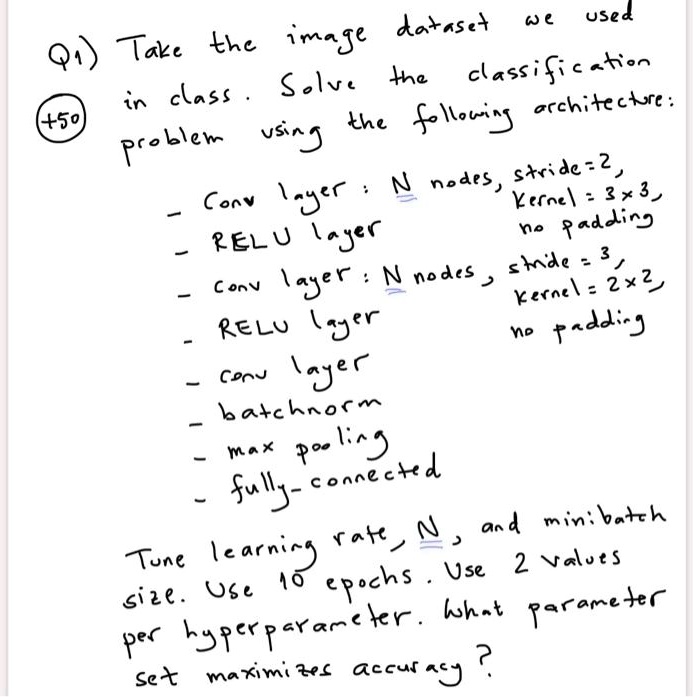 Q1) Take the image dataset we used
in class. Solve the classification
+50
problem using the following architecture:
- Conv layer : N nodes, stride=2,
Kernel = 3x3,
no padding
- RELU layer
- conv layer : N nodes, stride = 3,
Kernel = 2x2,
no padding
- RELU layer
- conv layer
- batchnorm
- max pooling
- fully-connected
Tune learning rate, N, and minibatch
size. Use 10 epochs. Use 2 values
per hyperparameter. What parameter
set maximizes accuracy?